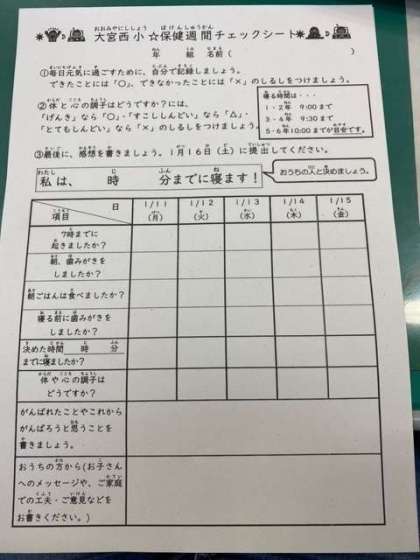 大宮西小☆保健週間チェックシート
年　組　名前（　　　　　）
①毎日元気に過ごすために、自分で記録しましょう。
できたことには「○」、できなかったことには「×」のしるしをつけましょう。
②体と心の調子はどうですか？には、
「げんき」なら「○」・「すこししんどい」なら「△」・
「とてもしんどい」なら「×」のしるしをつけましょう。
寝る時間は・・・
1・2年　9:00まで
3・4年　9:30まで
5・6年10:00までが目安です。
③最後に、感想を書きましょう。1月16日（土）に提出してください。
私は、　時　　分までに寝ます！
おうちの人と決めましょう。
日
項目
1/11 1/12 1/13 1/14 1/15
（月） （火） （水） （木） （金）
7時までに
起きましたか？
朝、歯みがきを
しましたか？
朝ごはんは食べましたか？
寝る前に歯みがきを
しましたか？
決めた時間　時　分
までに寝ましたか？
体や心の調子は
どうですか？
がんばれたことやこれから
がんばろうと思うことを
書きましょう。
おうちの方から(お子さん
へのメッセージや、ご家庭
での工夫・ご意見などを
お書きください。)